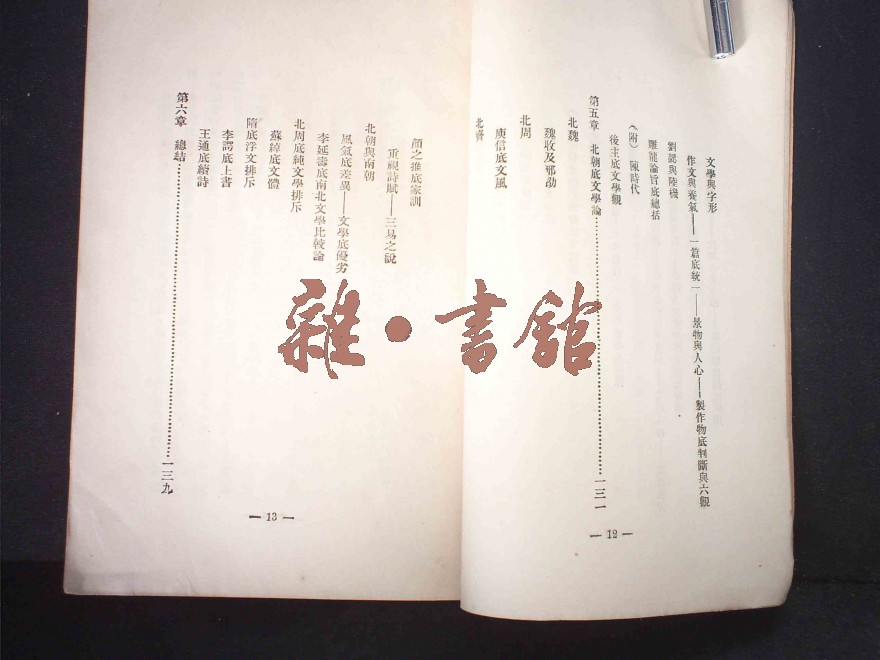 文學與字形
作文與養氣——一篇底統一——景物與人心——製作物底判斷與六觀
劉勰與陸機
雕龍論旨底總括
（附） 陳時代
後主底文學觀
第五章 北朝底文學論…………一三一
北魏
魏收及邢劭
北周
庾信底文風
北齊
— 12 —
顏之推底家訓
重視詩賦——三易之說
北朝與南朝
風氣底差異——文學底優劣
李延壽底南北文學比較論
北周底純文學排斥
蘇綽底文體
隋底浮文排斥
李諤底上書
王通底續詩
第六章 總結…………一三九
— 13 —
雜·書館